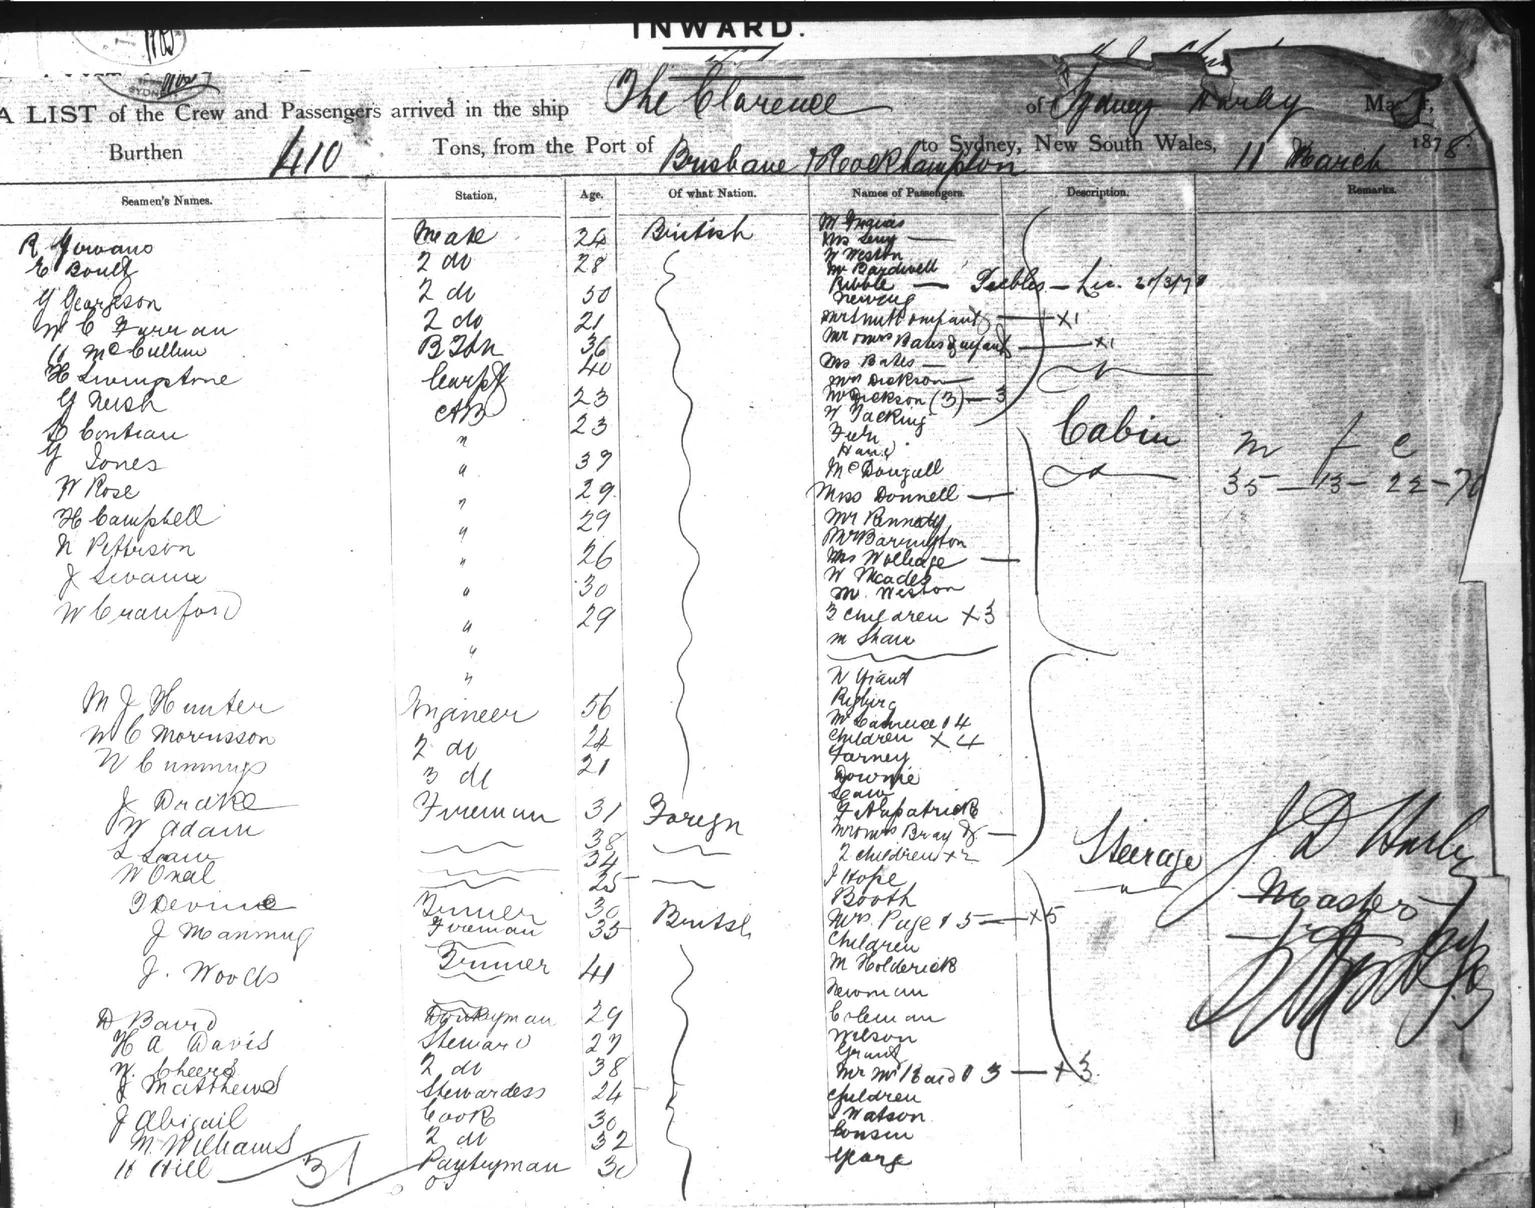 INWARD.
A LIST of the Crew and Passengers arrived in the ship The Clarence of Sydney Harby Master,
Burthen 410 Tons, from the Port of Brisbane & Rockhampton to Sydney, New South Wales, 11 March 1878
Seamen's Names. Station, Age. Of what Nation. Names of Passengers. Description. Remarks.
R Mate 26 British
E Boult 2 do 28
G Georgeson 2 do 50
W C Farran 2 do 21
H McCullum 36
H Livingstone Carp 40
G Neish AB 23
23
G Jones " 37
W Rose " 29
H Campbell " 29
N Petterson " 26
J " 30
W Crawford " 29
M J Hunter Engineer 56
W C Morrisson 2 do 24
W Cummings 3 do 21
J Drake Fireman 31 Foreign
W Adam 38
L Law 34
W Oneal 25
T Devine Trimer 30 British
J Manning Fireman 35
J. Woods Trimer 41
D Baird Donkeyman 29
H A Davis Steward 27
W. Cheers 2 do 38
J Matthews Stewardess 24
J Abigail Cook 30
M. Williams 2 do 32
H Hill Pantryman 30
31
OS
Mrs Levy
W Weston
Mr Bardwell
Bibble — Peebles — Lic. 21/3/78
— x1
Mr & Mrs Bates & infant — x1
Ms Bates —
Mrs Dickson —
Mr Dickson (3) — 3
W Tacking
Hand
McDougall
Miss Donnell —
Mr Kennedy
Mr Barrington
Mrs Wolledge —
W Meades
M. Weston
3 children x3
M Shaw
Cabin
m f c
35 — 13 — 22 — 70
N Grant
4
children x 4
Farney
Downie
Law
Fitzpatrick
Mr & Mrs Bray & —
2 children x 2
J Hope
Booth
Mrs. Page & 5 — x5
Children
M Holderick
Newman
Coleman
Wilson
Grant
Mr Mrs Baird & 3 — x 3
Children
J Watson
Cousin
George
Steerage
J D Harby
Master